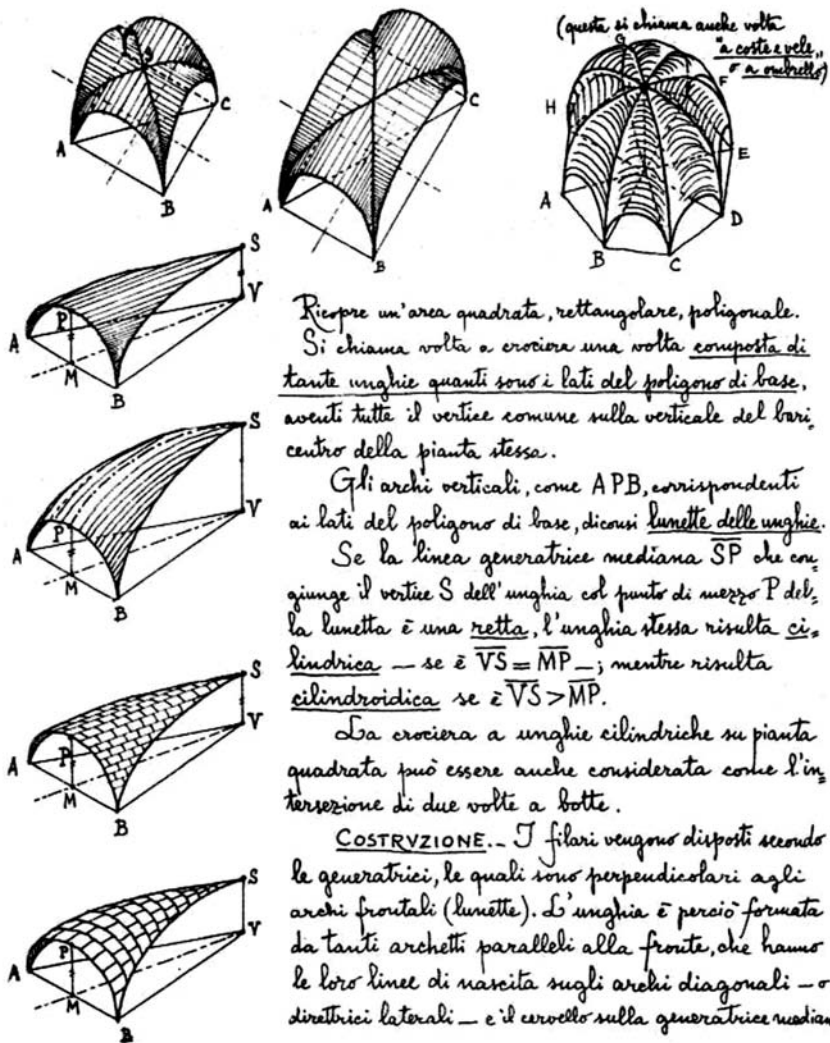 (questa si chiama anche volta
"a coste e vele„
o a ombrello)
S
A
B
C
A
B
C
G
F
H
E
A
D
B
C
S
V
P
A
M
B
S
V
P
A
M
B
S
V
P
A
M
B
S
V
P
A
M
B
Ricopre un'area quadrata, rettangolare, poligonale.
Si chiama volta a crociera una volta composta di
tante unghie quanti sono i lati del poligono di base,
aventi tutte il vertice comune sulla verticale del bari=
centro della pianta stessa.
Gli archi verticali, come APB, corrispondenti
ai lati del poligono di base, diconsi lunette delle unghie.
Se la linea generatrice mediana S̅P̅ che con=
giunge il vertice S dell'unghia col punto di mezzo P del=
la lunetta è una retta, l'unghia stessa risulta ci=
lindrica — se è V̅S̅ = M̅P̅ —; mentre risulta
cilindroidica se è V̅S̅ > M̅P̅.
La crociera a unghie cilindriche su pianta
quadrata può essere anche considerata come l'in=
tersezione di due volte a botte.
COSTRVZIONE._ I filari vengono disposti secondo
le generatrici, le quali sono perpendicolari agli
archi frontali (lunette). L'unghia è perciò formata
da tanti archetti paralleli alla fronte, che hanno
le loro linee di nascita sugli archi diagonali — o
direttrici laterali — e il cervello sulla generatrice median